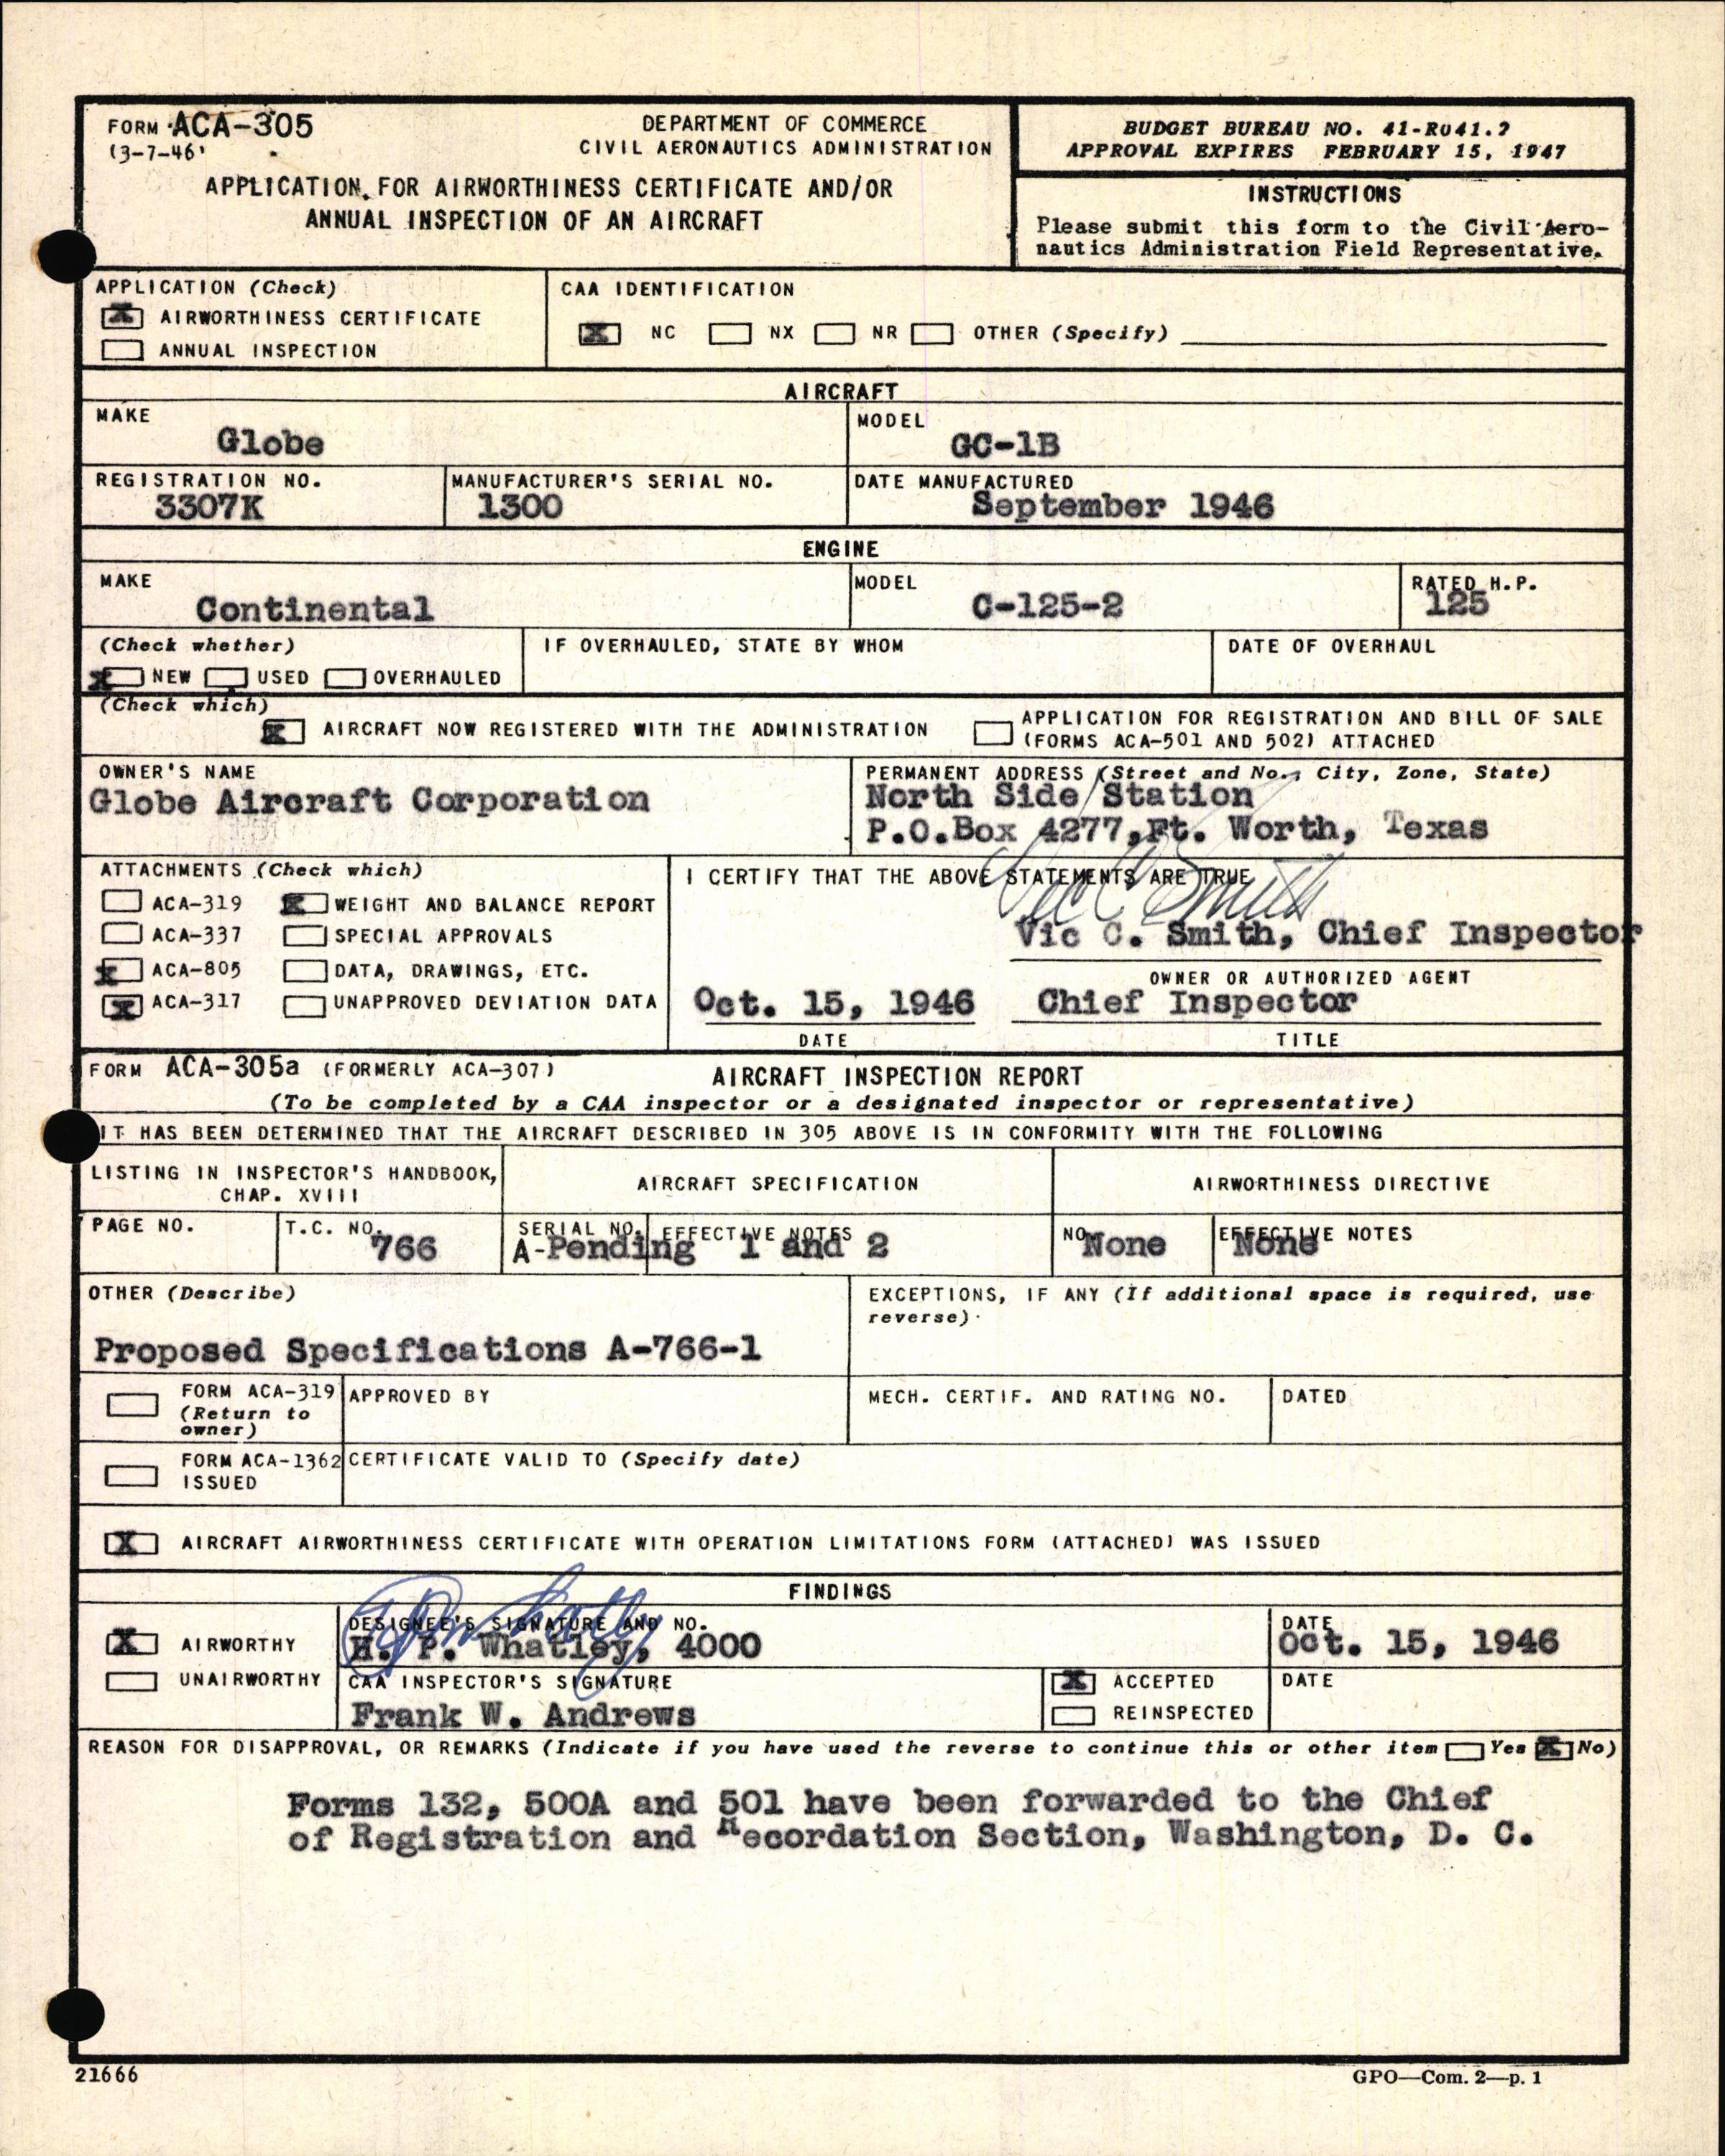 FORM ACA-305
(3-7-46)
DEPARTMENT OF COMMERCE
CIVIL AERONAUTICS ADMINISTRATION
APPLICATION FOR AIRWORTHINESS CERTIFICATE AND/OR
ANNUAL INSPECTION OF AN AIRCRAFT
BUDGET BUREAU NO. 41-R041.2
APPROVAL EXPIRES FEBRUARY 15, 1947
INSTRUCTIONS
Please submit this form to the Civil Aero-
nautics Administration Field Representative.
APPLICATION (Check)
X AIRWORTHINESS CERTIFICATE
ANNUAL INSPECTION
CAA IDENTIFICATION
X NC NX NR OTHER (Specify)
AIRCRAFT
MAKE
Globe
MODEL
GC-1B
REGISTRATION NO.
3307K
MANUFACTURER'S SERIAL NO.
1300
DATE MANUFACTURED
September 1946
ENGINE
MAKE
Continental
MODEL
C-125-2
RATED H.P.
125
(Check whether)
X NEW USED OVERHAULED
IF OVERHAULED, STATE BY WHOM
DATE OF OVERHAUL
(Check which)
X AIRCRAFT NOW REGISTERED WITH THE ADMINISTRATION
APPLICATION FOR REGISTRATION AND BILL OF SALE
(FORMS ACA-501 AND 502) ATTACHED
OWNER'S NAME
Globe Aircraft Corporation
PERMANENT ADDRESS (Street and No., City, Zone, State)
North Side Station
P.O.Box 4277,Ft. Worth, Texas
ATTACHMENTS (Check which)
ACA-319 X WEIGHT AND BALANCE REPORT
ACA-337 SPECIAL APPROVALS
X ACA-805 DATA, DRAWINGS, ETC.
X ACA-317 UNAPPROVED DEVIATION DATA
I CERTIFY THAT THE ABOVE STATEMENTS ARE TRUE
Vic C Smith
Vic C. Smith, Chief Inspector
OWNER OR AUTHORIZED AGENT
Oct. 15, 1946 Chief Inspector
DATE TITLE
FORM ACA-305a (FORMERLY ACA-307)
AIRCRAFT INSPECTION REPORT
(To be completed by a CAA inspector or a designated inspector or representative)
IT HAS BEEN DETERMINED THAT THE AIRCRAFT DESCRIBED IN 305 ABOVE IS IN CONFORMITY WITH THE FOLLOWING
LISTING IN INSPECTOR'S HANDBOOK,
CHAP. XVIII
AIRCRAFT SPECIFICATION
AIRWORTHINESS DIRECTIVE
PAGE NO.
T.C. NO.
766
SERIAL NO. EFFECTIVE NOTES
A-Pending 1 and 2
NO.
None
EFFECTIVE NOTES
None
OTHER (Describe)
Proposed Specifications A-766-1
EXCEPTIONS, IF ANY (If additional space is required, use
reverse)
FORM ACA-319
(Return to
owner)
APPROVED BY
MECH. CERTIF. AND RATING NO.
DATED
FORM ACA-1362
ISSUED
CERTIFICATE VALID TO (Specify date)
X AIRCRAFT AIRWORTHINESS CERTIFICATE WITH OPERATION LIMITATIONS FORM (ATTACHED) WAS ISSUED
FINDINGS
X AIRWORTHY
UNAIRWORTHY
DESIGNEE'S SIGNATURE AND NO.
HP Whatley
H. P. Whatley, 4000
DATE
Oct. 15, 1946
CAA INSPECTOR'S SIGNATURE
Frank W. Andrews
X ACCEPTED
REINSPECTED
DATE
REASON FOR DISAPPROVAL, OR REMARKS (Indicate if you have used the reverse to continue this or other item Yes X No)
Forms 132, 500A and 501 have been forwarded to the Chief
of Registration and Recordation Section, Washington, D. C.
21666
GPO—Com. 2—p. 1